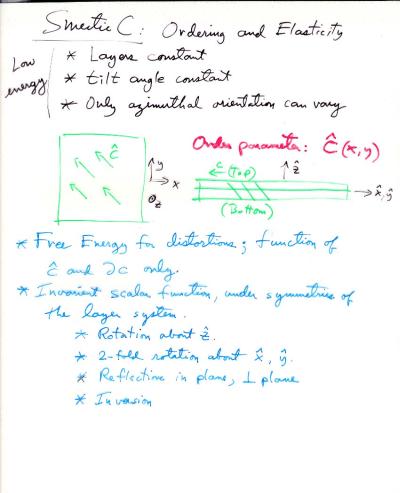 Smectic C: Ordering and Elasticity
Low energy
* Layers constant
* tilt angle constant
* Only azimuthal orientation can vary
Order parameter: ĉ(x,y)
ĉ
y
x
z
c (Top)
ẑ
x̂,ŷ
(Bottom)
* Free Energy for distortions; function of
ĉ and ∂c only.
* Invarient scalar function, under symmetries of
the layer system.
* Rotation about ẑ.
* 2-fold rotation about x̂, ŷ.
* Reflections in plane, ⊥ plane
* Inversion